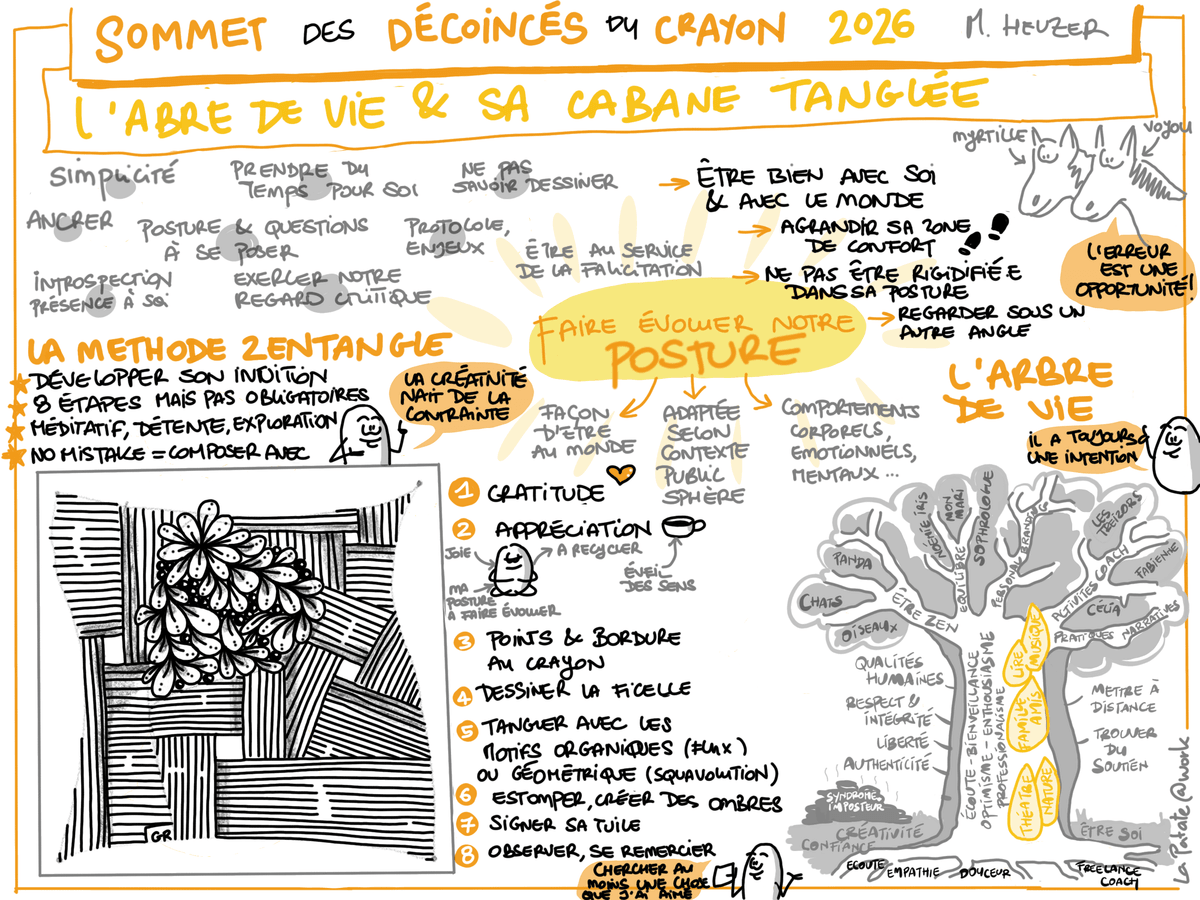 SOMMET DES DÉCOINCÉS DU CRAYON 2026
M. HEUZER
L'ABRE DE VIE & SA CABANE TANGLÉE
SIMPLICITÉ
PRENDRE DU
TEMPS POUR SOI
NE PAS
SAVOIR DESSINER
ANCRER
POSTURE & QUESTIONS
À SE POSER
PROTOCOLE,
ENJEUX
INTROSPECTION
PRÉSENCE À SOI
EXERCER NOTRE
REGARD CRITIQUE
ÊTRE AU SERVICE
DE LA FALICITATION
→ ÊTRE BIEN AVEC SOI
& AVEC LE MONDE
→ AGRANDIR SA ZONE
DE CONFORT
→ NE PAS ÊTRE RIGIDIFIÉ·E
DANS SA POSTURE
→ REGARDER SOUS UN
AUTRE ANGLE
MYRTILLE
VOYOU
L'ERREUR
EST UNE
OPPORTUNITÉ!
FAIRE ÉVOLUER NOTRE
POSTURE
FAÇON
D'ÊTRE
AU MONDE
ADAPTÉE
SELON
CONTEXTE
PUBLIC
SPHÈRE
COMPORTEMENTS
CORPORELS,
EMOTIONNELS,
MENTAUX ...
LA METHODE ZENTANGLE
DÉVELOPPER SON INTUITION
8 ÉTAPES MAIS PAS OBLIGATOIRES
MÉDITATIF, DÉTENTE, EXPLORATION
NO MISTAKE = COMPOSER AVEC
LA CRÉATIVITÉ
NAIT DE LA
CONTRAINTE
GR
1 GRATITUDE
2 APPRÉCIATION
JOIE
A RECYCLER
MA
POSTURE
A FAIRE ÉVOLUER
ÉVEIL
DES SENS
3 POINTS & BORDURE
AU CRAYON
4 DESSINER LA FICELLE
5 TANGUER AVEC LES
MOTIFS ORGANIQUES (FLUX)
OU GÉOMÉTRIQUE (SQUAVOLUTION)
6 ESTOMPER, CRÉER DES OMBRES
7 SIGNER SA TUILE
8 OBSERVER, SE REMERCIER
CHERCHER AU
MOINS UNE CHOSE
QUE J'AI AIMÉ
L'ARBRE
DE VIE
IL A TOUJOURS
UNE INTENTION
PANDA
CHATS
OISEAUX
ÊTRE ZEN
NOÉMIE IRIS
MON
MARI
SOPHROLOGUE
EQUILIBRE
PERSONAL BRANDING
LES
TREIZORS
FABIENNE
CÉLIA
ACTIVITÉS COACH
PRATIQUES NARRATIVES
QUALITÉS
HUMAINES
RESPECT &
INTÉGRITÉ
LIBERTÉ
AUTHENTICITÉ
ÉCOUTE - BIENVEILLANCE
OPTIMISME - ENTHOUSIASME
PROFESSIONALISME
LIRE
MUSIQUE
FAMILLE
AMIS
THÉATRE
NATURE
METTRE À
DISTANCE
TROUVER
DU
SOUTIEN
SYNDROME
IMPOSTEUR
CRÉATIVITÉ
CONFIANCE
ÊTRE SOI
ECOUTE
EMPATHIE
DOUCEUR
FREELANCE
COACH
La Patate @work